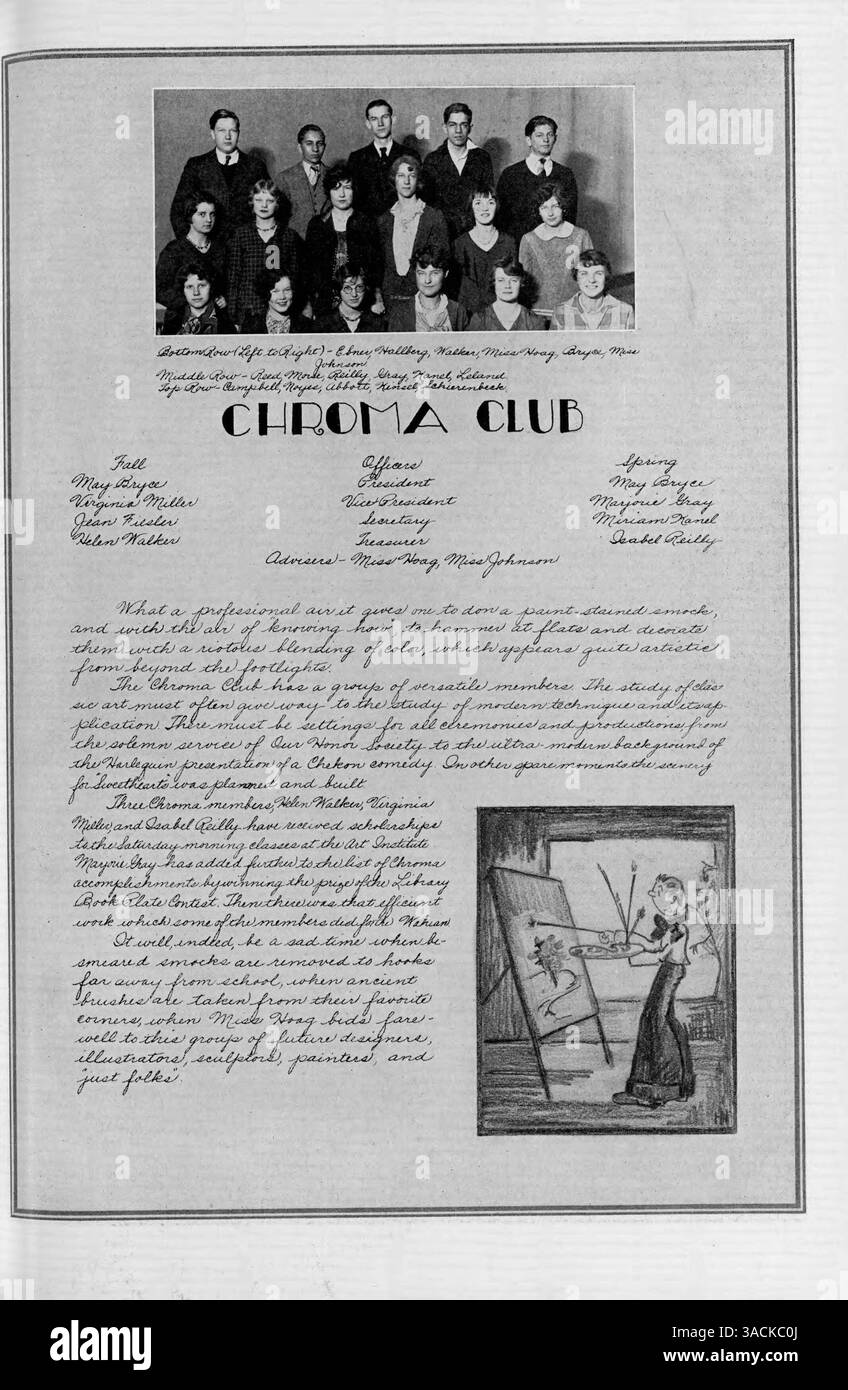 Bottom Row (Left to Right) - Ebner, Hallberg, Walker, Miss Hoag, Bryce, Miss
Johnson
Middle Row - Reed, Moir, Reilly, Gray, Kanel, Leland
Top Row - Campbell, Noyes, Abbott, Kinsel, Schierenbeck
CHROMA CLUB
Fall Officers Spring
May Bryce President May Bryce
Virginia Miller Vice President Marjorie Gray
Jean Fiesler Secretary Miriam Kanel
Helen Walker Treasurer Isabel Reilly
Advisers - Miss Hoag, Miss Johnson
What a professional air it gives one to don a paint-stained smock,
and with the air of "knowing how", to hammer at flats and decorate
them with a riotous blending of color, which appears quite artistic
from beyond the footlights.
The Chroma Club has a group of versatile members. The study of clas
sic art must often give way to the study of modern technique and its ap-
plication. There must be settings for all ceremonies and productions, from
the solemn service of Our Honor Society to the ultra-modern background of
the Harlequin presentation of a Chekon comedy. In other spare moments the scenery
for "Sweethearts" was planned and built
Three Chroma members, Helen Walker, Virginia
Miller, and Isabel Reilly have received scholarships
to the Saturday morning classes at the Art Institute
Marjorie Gray has added further to the list of Chroma
accomplishments by winning the prize of the Library
Book Plate Contest. Then there was that efficient
work which some of the members did for the Wahian
It will, indeed, be a sad time when be-
smeared smocks are removed to hooks
far away from school, when ancient
brushes are taken from their favorite
corners, when Miss Hoag bids fare-
well to this group of future designers,
illustrators, sculptors, painters, and
"just folks".
alamy
Image ID: 3ACKC0J
www.alamy.com